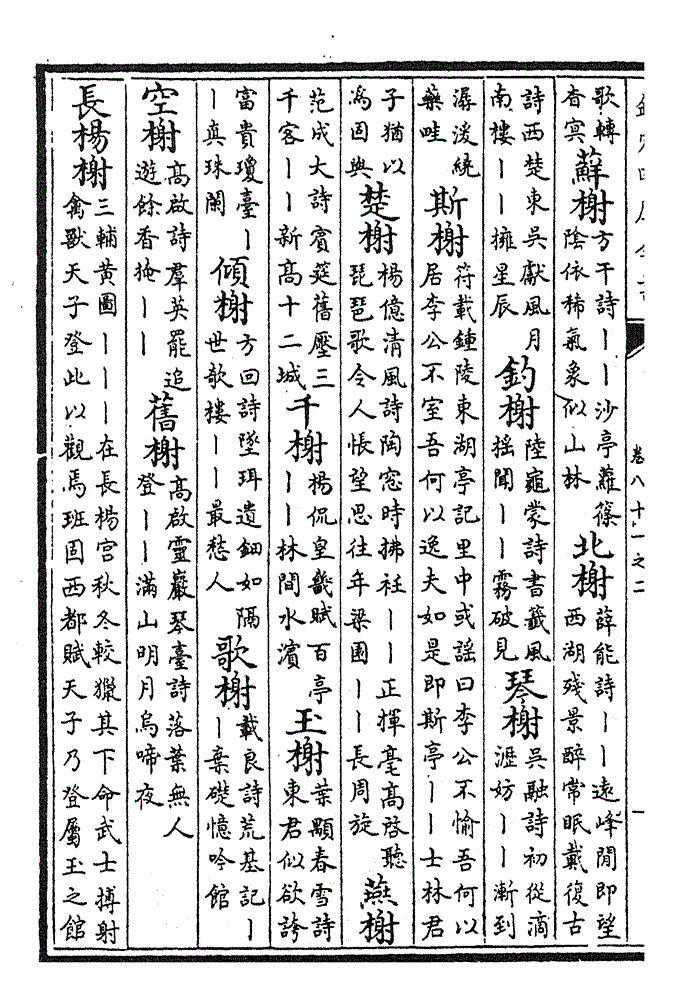 卷八十一之二
歌轉杳㝠 蘚榭 方干詩丨丨沙亭蘿篠陰依稀氣象似山林 北榭 薛能詩丨丨遠峰閒即望西湖殘景醉常眠戴復古
詩西楚東吳獻風月南樓丨丨擁星辰 釣榭 陸龜蒙詩書籤風揺聞丨丨霧破見 琴榭 吳融詩初從滴瀝妨丨丨漸到
潺湲繞藥畦 斯榭 符載鍾陵東湖亭記里中或謡曰李公不愉吾何以居李公不室吾何以逸夫如是即斯亭丨丨士林君
子猶以為固與 楚榭 楊億清風詩陶窓時拂袵丨丨正揮毫高啓聽琵琶歌令人悵望思往年梁園丨丨長周旋 燕榭
范成大詩賓筵舊壓三千客丨丨新高十二城 千榭 楊侃皇畿賦百亭丨丨林間水濱 玉榭 葉顒春雪詩東君似欲誇
富貴瓊臺丨丨真珠闌 傾榭 方回詩墜珥遺鈿如隔世歌樓丨丨最愁人 歌榭 戴良詩荒基記丨丨棄礎憶吟館
空榭 高啟詩羣英罷追遊餘香掩丨丨 舊榭 高啟靈巖琴臺詩落葉無人登丨丨滿山明月烏啼夜
長楊榭 三輔黄圖丨丨丨在長楊宫秋冬較獵其下命武士搏射禽獸天子登此以觀焉班固西都賦天子乃登屬玉之館